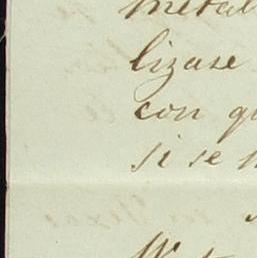 metal
lizase
con qu
si se